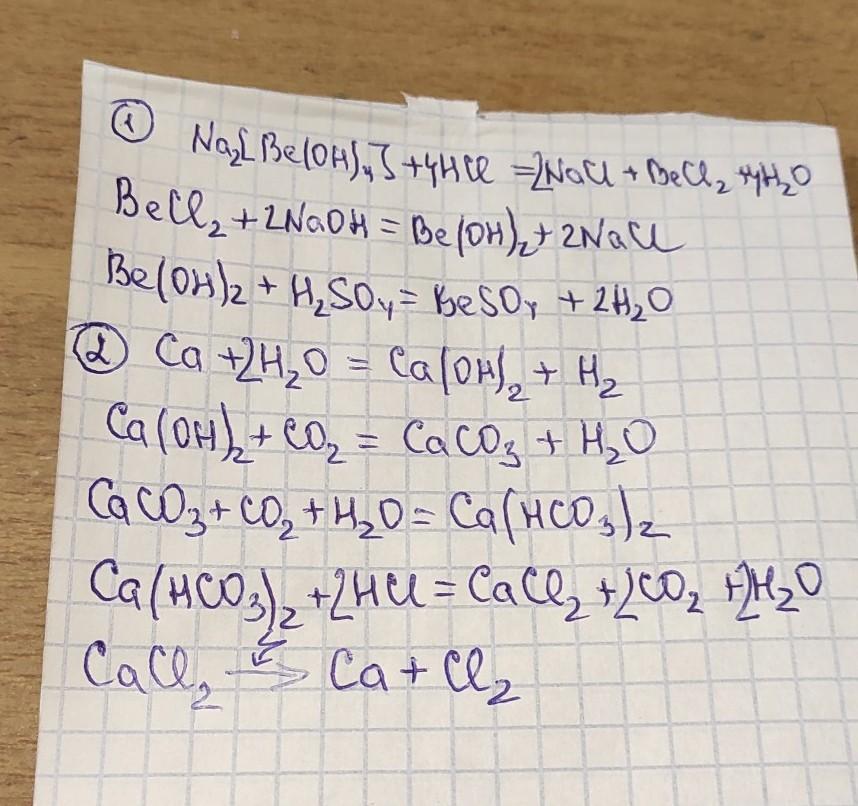 ① Na₂[Be(OH)₄] + 4HCl = 2NaCl + BeCl₂ + 4H₂O
BeCl₂ + 2NaOH = Be(OH)₂ + 2NaCl
Be(OH)₂ + H₂SO₄ = BeSO₄ + 2H₂O
② Ca + 2H₂O = Ca(OH)₂ + H₂
Ca(OH)₂ + CO₂ = CaCO₃ + H₂O
CaCO₃ + CO₂ + H₂O = Ca(HCO₃)₂
Ca(HCO₃)₂ + 2HCl = CaCl₂ + 2CO₂ + 2H₂O
CaCl₂ → Ca + Cl₂